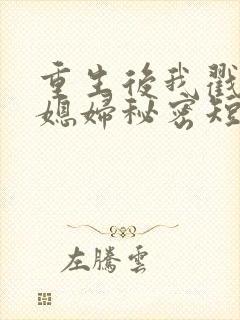 重生後我戳
媳婦秘密短
左騰雲